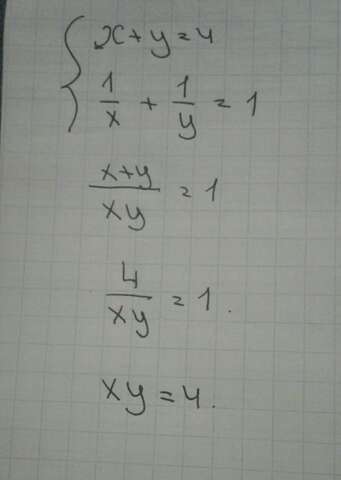 x+y=4
1/x + 1/y = 1
x+y/xy = 1
4/xy = 1.
xy=4.